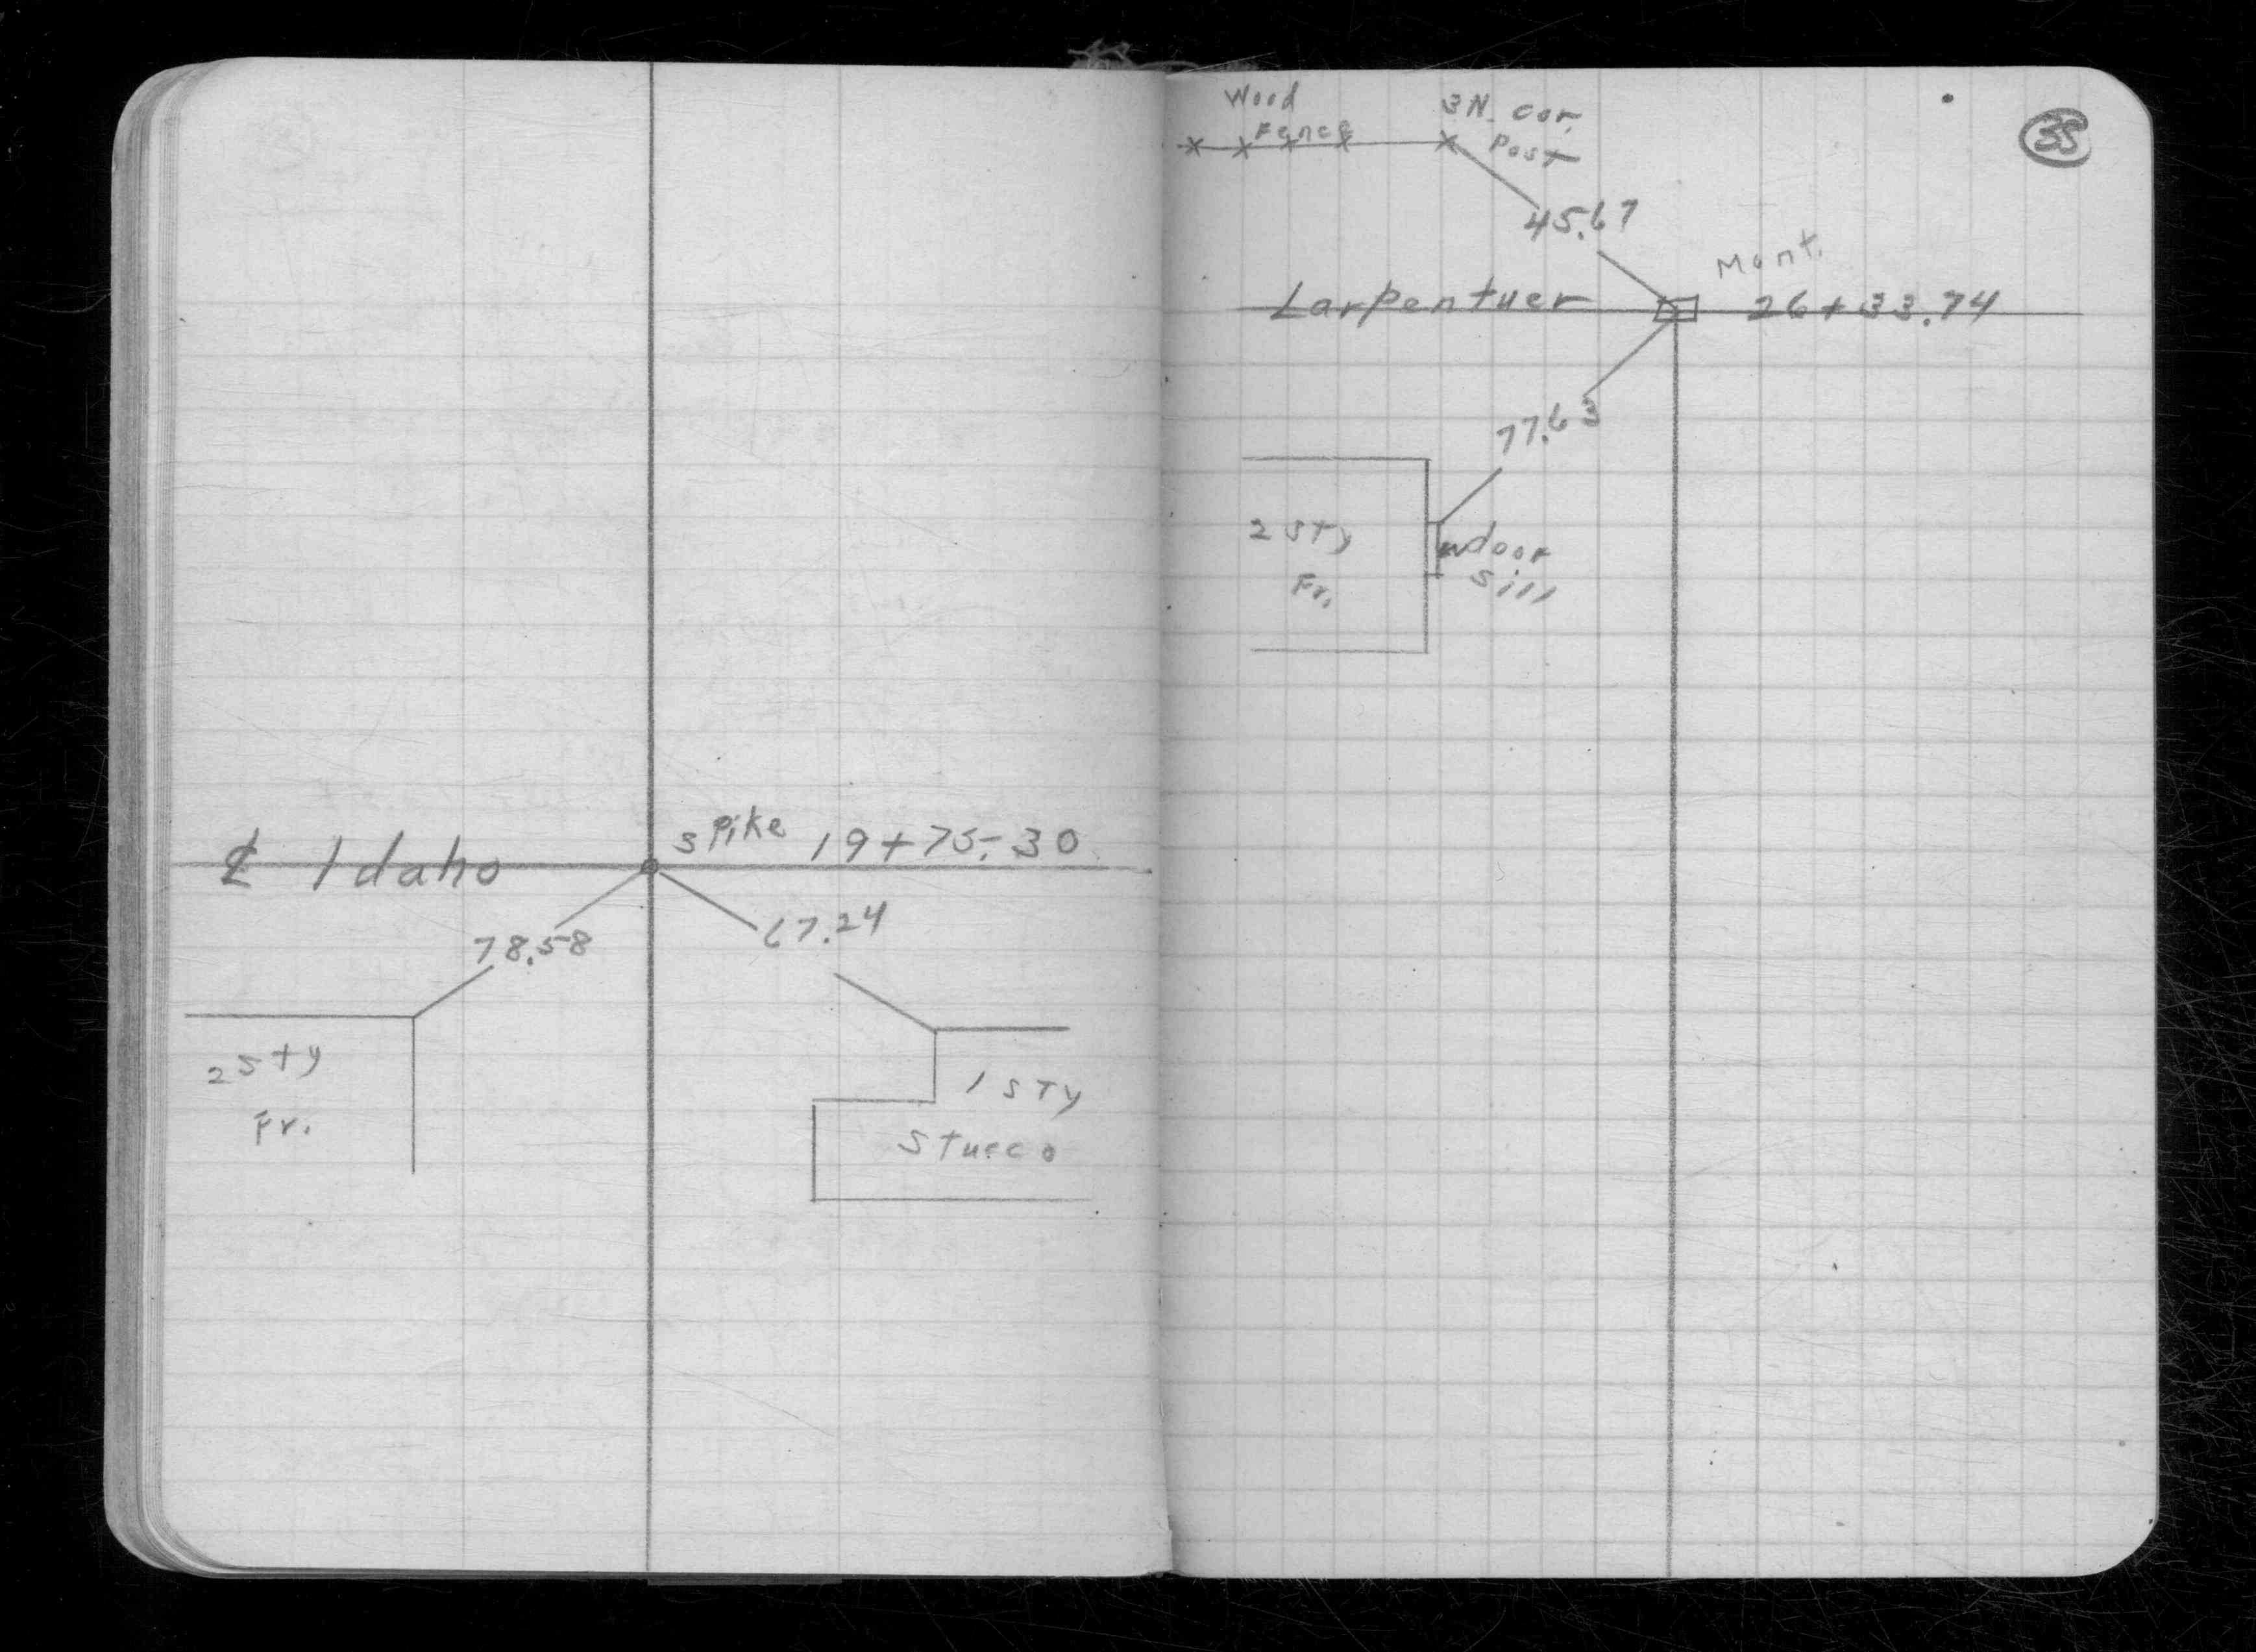 ℄ Idaho
spike 19+75.30
78.58
67.24
2 sty
Fr.
1 sty
Stucco
35
Wood
Fence
3N. cor.
Post
45.67
Mont.
Larpentuer
26+33.74
77.63
2 sty
Fr.
door
sill